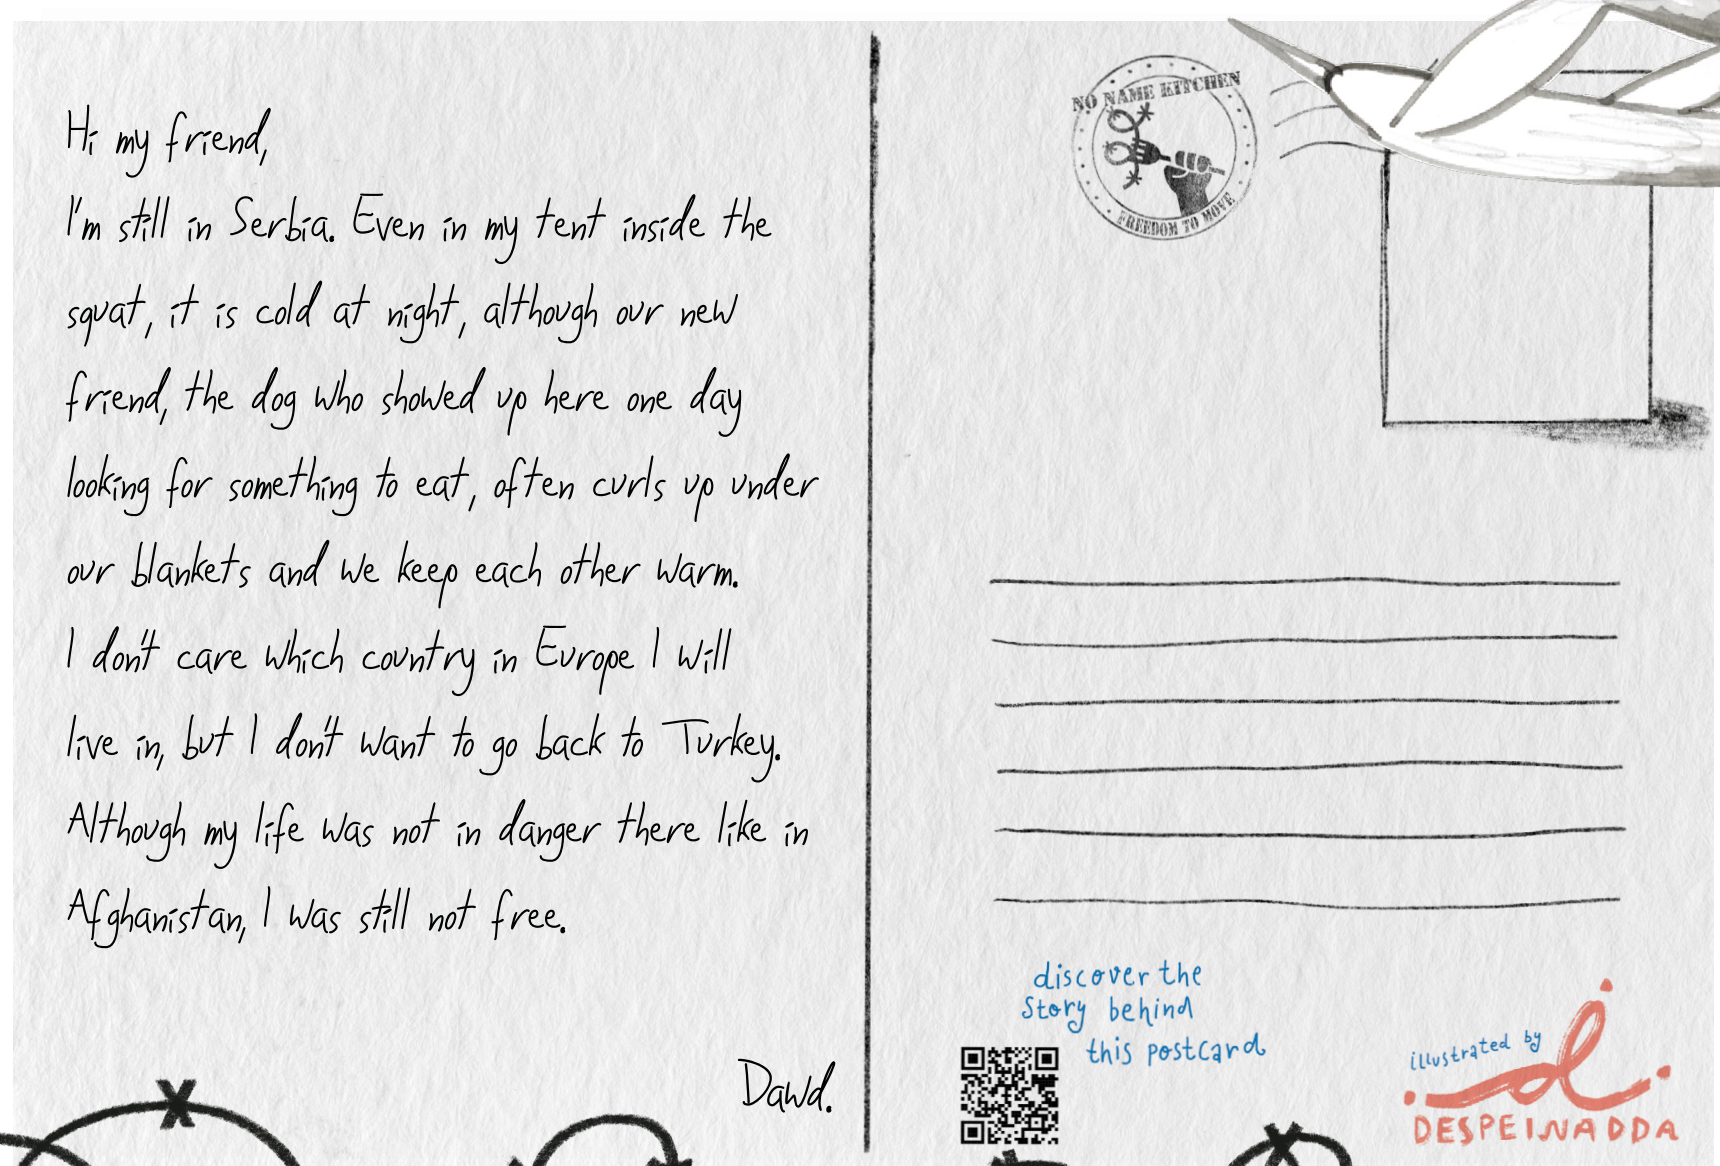 Hi my friend,
I'm still in Serbia. Even in my tent inside the
squat, it is cold at night, although our new
friend, the dog who showed up here one day
looking for something to eat, often curls up under
our blankets and we keep each other warm.
I don't care which country in Europe I will
live in, but I don't want to go back to Turkey.
Although my life was not in danger there like in
Afghanistan, I was still not free.
Dawd.
NO NAME KITCHEN
FREEDOM TO MOVE
discover the
story behind
this postcard
illustrated by
DESPEINADDA